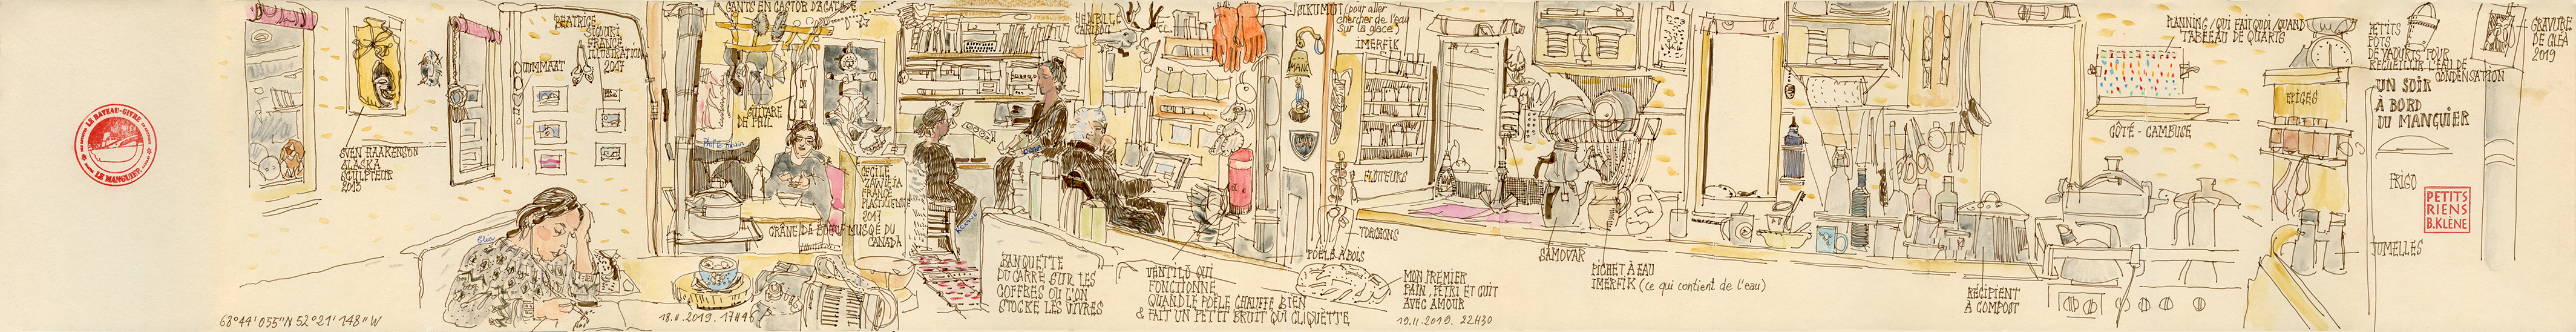 LE BATEAU-GIVRE
LE MANGUIER
68°44'055"N 52°21'148"W
SVEN HAAKENSON
ALASKA
SCULPTEUR
2013
QUMMAAT
BEATRICE
FRANCE
ILLUSTRATION
2017
18.11.2019. 17H46
GANTS EN CASTOR
GUITARE
DE PHIL
CECILE
ZAWIEJA
FRANCE
PLASTICIENNE
2017
CRÂNE DE BOEUF MUSQÉ DU
CANADA
BANQUETTE
DU CARRÉ SUR LES
COFFRES OÙ L'ON
STOCKE LES VIVRES
CARIBOU
VENTILO QUI
FONCTIONNE
QUAND LE POÊLE CHAUFFE BIEN
& FAIT UN PETIT BRUIT QUI CLIQUETTE
SIKUMUT (pour aller
chercher de l'eau
sur la glace)
IMERFIK
MANG
FLOTTEURS
TORCHONS
POÊLE À BOIS
MON PREMIER
PAIN, PÉTRI ET CUIT
AVEC AMOUR
19.11.2019. 22H30
SAMOVAR
PICHET À EAU
IMERFIK (ce qui contient de l'eau)
RÉCIPIENT
À COMPOST
PLANNING / QUI FAIT QUOI / QUAND
TABLEAU DE QUARTS
CÔTÉ - CAMBUSE
ÉPICES
PETITS
POTS
DE YAOURTS POUR
RECUEILLIR L'EAU DE
CONDENSATION
GRAVURE
DE
2019
UN SOIR
À BORD
DU MANGUIER
FRIGO
PETITS
RIENS
B.KLÈNE
JUMELLES